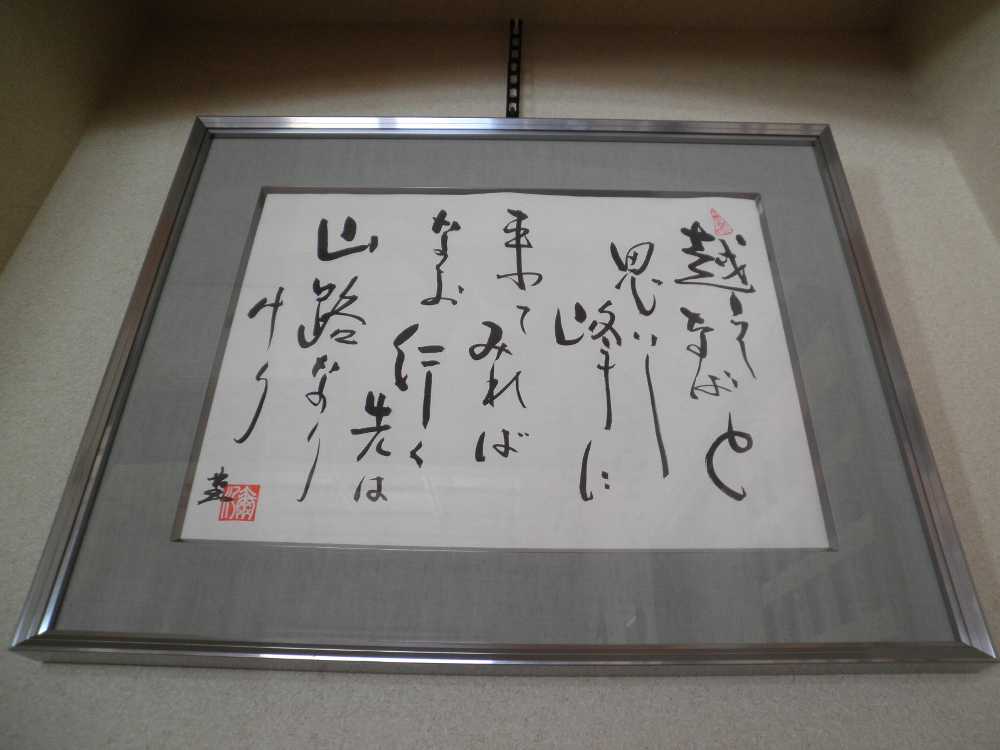 越えなばと
思いし
峰に
来てみれば
なお
行く
先は
山路なり
けり